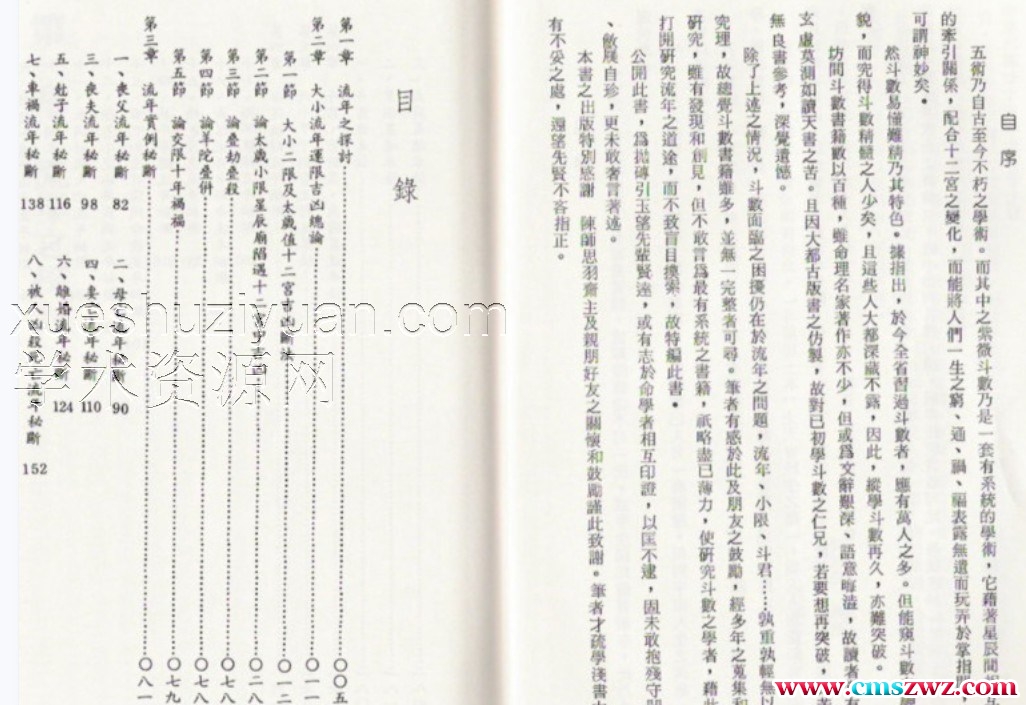 自序
五術乃自古至今不朽之學術。而其中之紫微斗數乃是一套有系統的學術，它藉著星辰間相互
的牽引關係，配合十二宮之變化，而能將人們一生之窮、通、禍、福表露無遺而玩弄於掌指間，
可謂神妙矣。
然斗數易懂難精乃其特色。據指出，於今全省習過斗數者，應有萬人之多。但能窺斗數
貌，而究得斗數精髓之人少矣，且這些人大都深藏不露，因此，縱學斗數再久，亦難突破。
坊間斗數書籍數以百種，雖命理名家著作亦不少，但或爲文辭艱深、語意晦澁，故讀者有
玄虛莫測如讀天書之苦。且因大都古版書之仿製，故對已初學斗數之仁兄，若要想再突破，
無良書參考，深覺遺憾。
除了上述之情況，斗數面臨之困擾仍在於流年之問題，流年、小限、斗君……孰重孰輕無以
究理，故總覺斗數書籍雖多，並無一完整者可尋。筆者有感於此及朋友之鼓勵，經多年之蒐集和
研究，雖有發現和創見，但不敢言爲最有系統之書籍，祇略盡已薄力，使研究斗數之學者，藉此
打開研究流年之道途，而不致盲目摸索，故特編此書。
公開此書，爲拋磚引玉望先輩賢達，或有志於命學者相互印證，以匡不逮，固未敢抱殘守
、敝屣自珍，更未敢奢言著述。
本書之出版特別感謝　陳師思羽齋主及親朋好友之關懷和鼓勵謹此致謝。筆者才疏學淺書中
有不妥之處，還望先賢不吝指正。
目錄
第一章　流年之探討……〇〇五
第二章　大小流年運限吉凶總論……〇一一
第一節　大小二限及太歲值十二宮吉凶斷法……〇一二
第二節　論太歲小限星辰廟陷遇十二宮守吉凶……〇二八
第三節　論叠劫叠殺……〇七八
第四節　論羊陀叠併……〇七八
第五節　論交限十年禍福……〇七九
第三章　流年實例秘斷……〇八一
一、喪父流年秘斷 82
二、母亡之年秘斷 90
三、喪夫流年秘斷 98
四、妻亡流年秘斷 110
五、尅子流年秘斷 116
六、離婚流年秘斷 124
七、車禍流年秘斷 138
八、被人凶殺死亡流年秘斷 152
xueshuziyuan.com
学术资源网
www.cmszwz.com